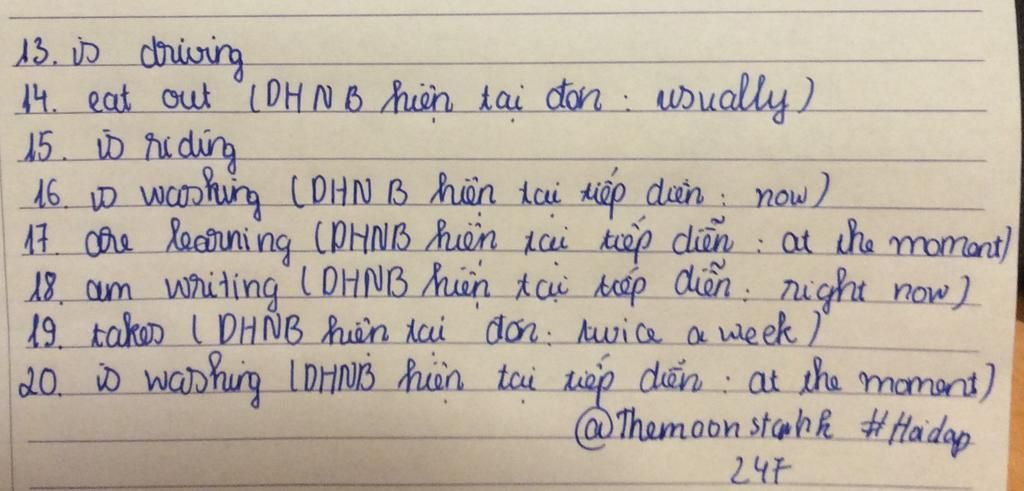 13. is driving
14. eat out (DHNB hiện tại đơn : usually)
15. is riding
16. is washing (DHNB hiện tại tiếp diễn : now)
17. are learning (DHNB hiện tại tiếp diễn : at the moment)
18. am writing (DHNB hiện tại tiếp diễn : right now)
19. takes (DHNB hiện tại đơn : twice a week)
20. is washing (DHNB hiện tại tiếp diễn : at the moment)
@Themoonstarhk #Hoidap
247